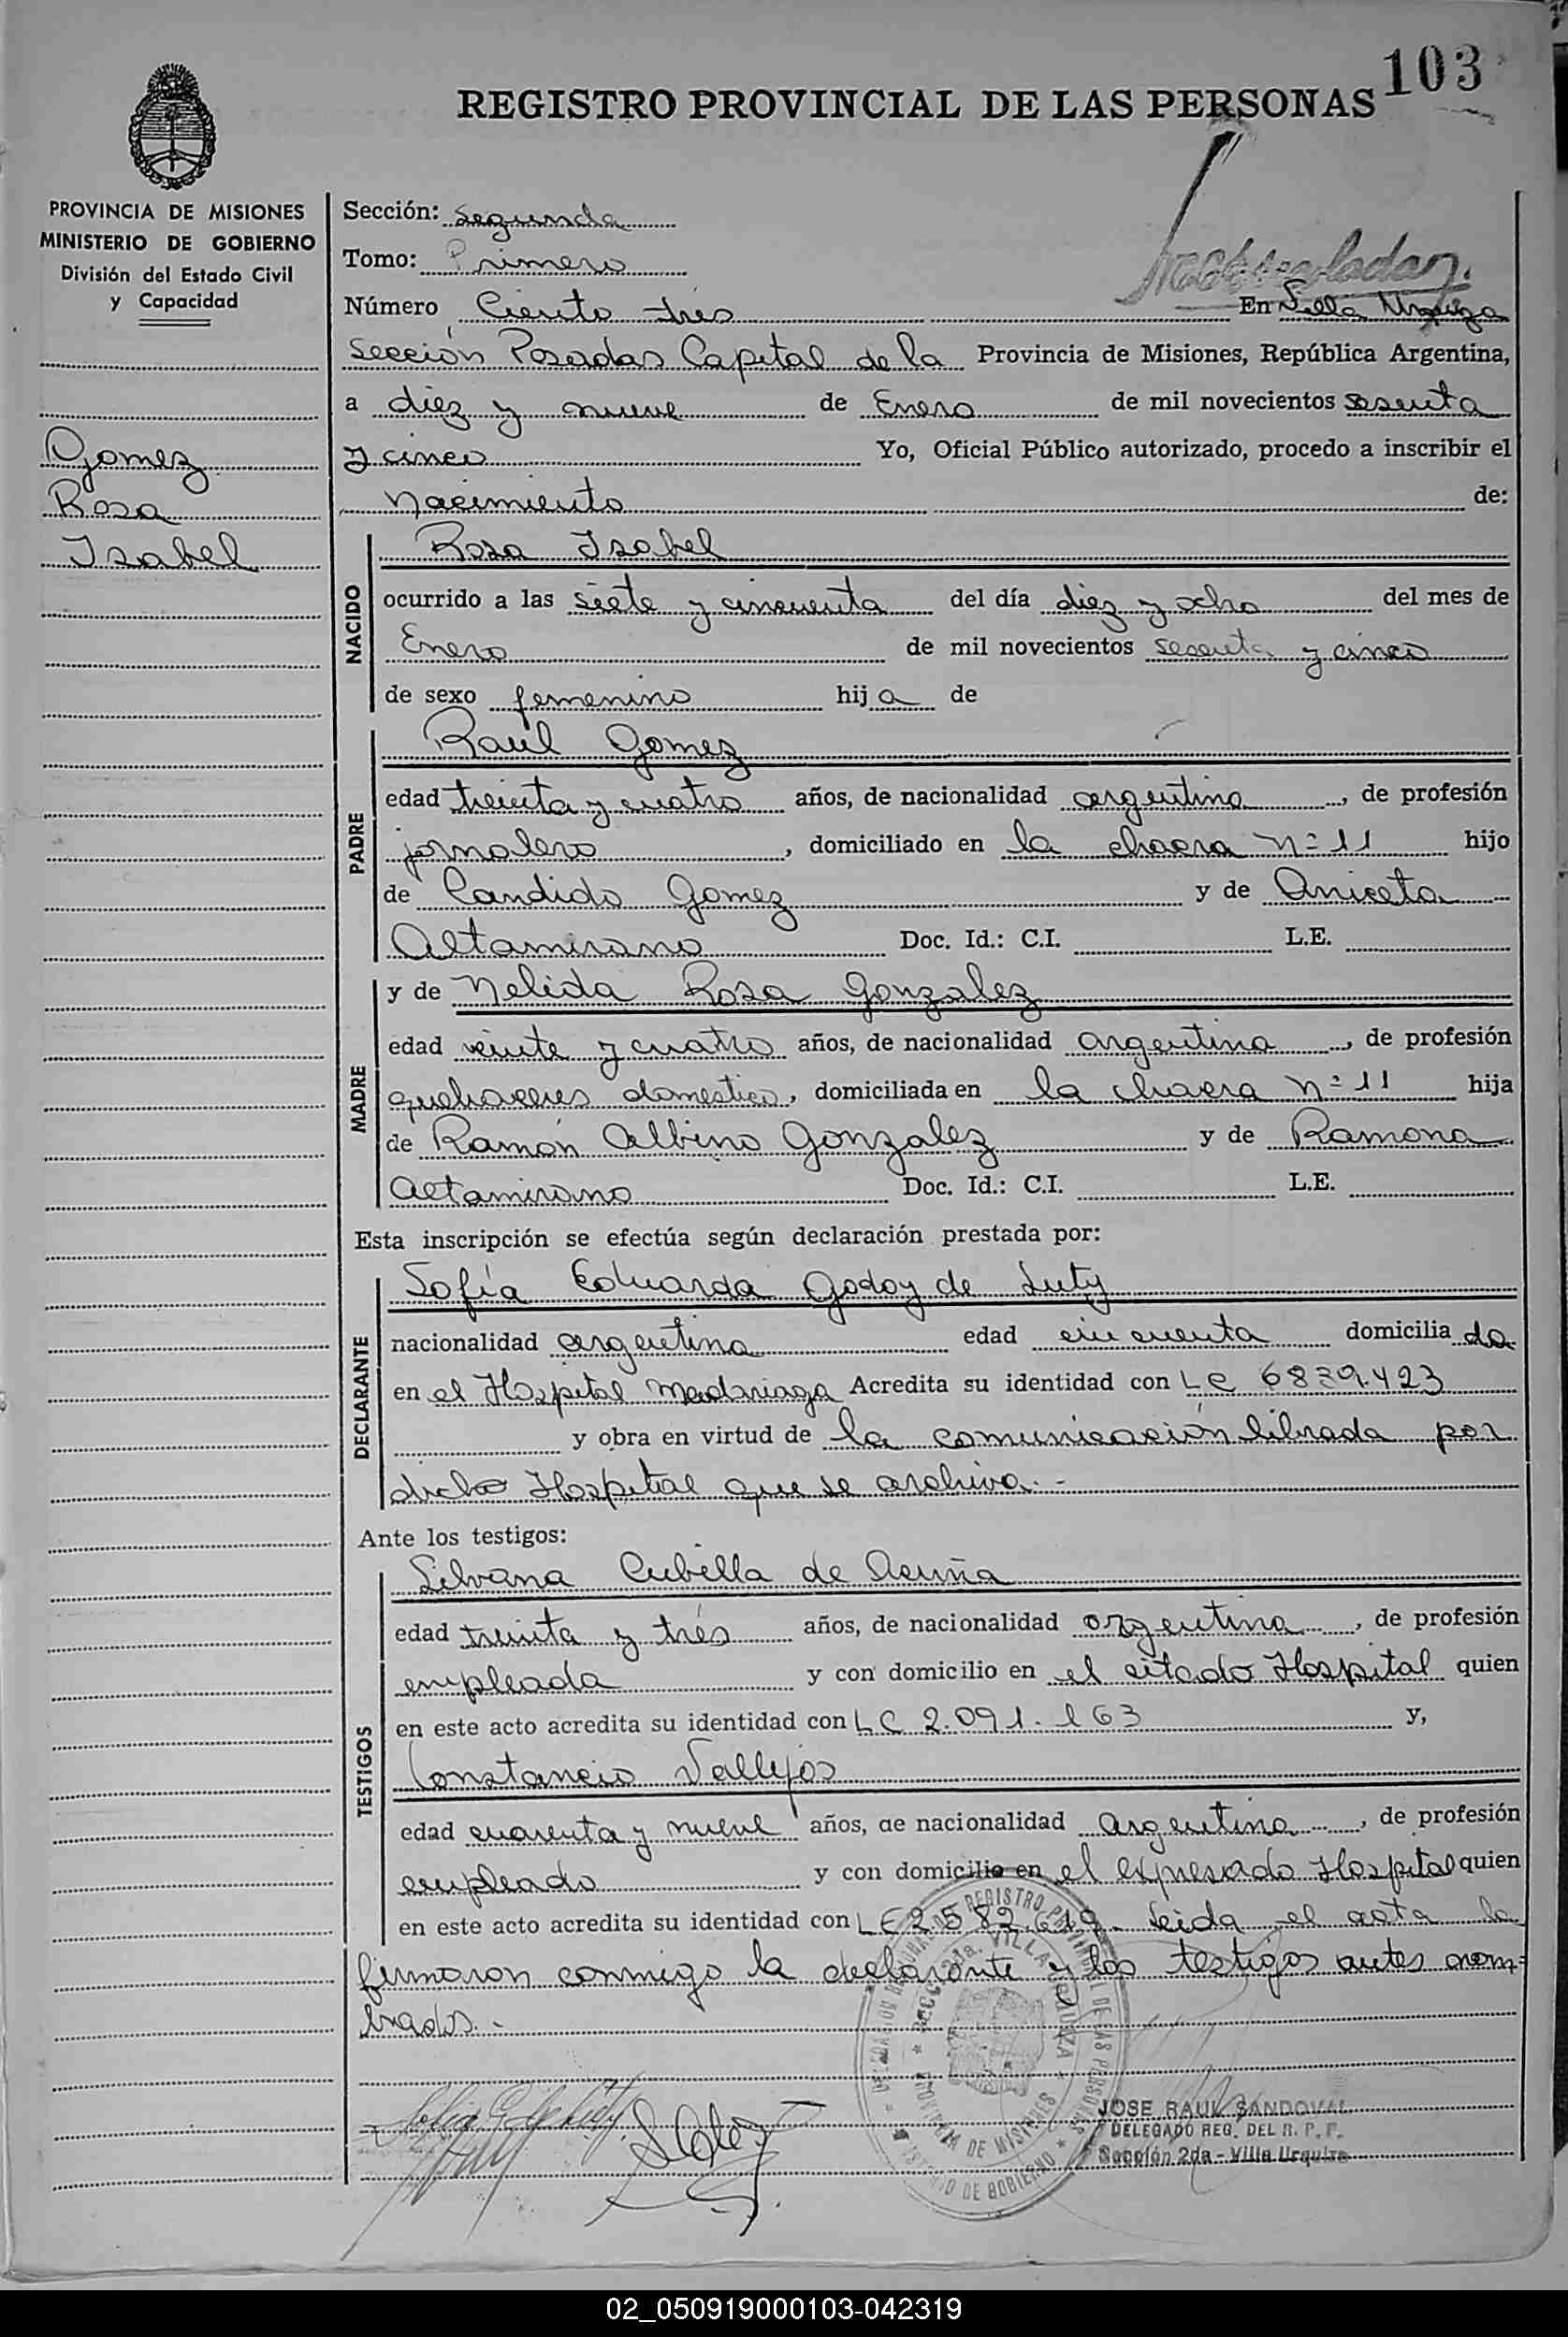 103
REGISTRO PROVINCIAL DE LAS PERSONAS
PROVINCIA DE MISIONES
MINISTERIO DE GOBIERNO
División del Estado Civil
y Capacidad
Gomez
Rosa
Isabel
Sección: Segunda
Tomo: Primero
Número Ciento tres En Villa Urquiza
Sección Posadas Capital de la Provincia de Misiones, República Argentina,
a diez y nueve de Enero de mil novecientos sesenta
y cinco Yo, Oficial Público autorizado, procedo a inscribir el
nacimiento de:
NACIDO
Rosa Isabel
ocurrido a las siete y cincuenta del día diez y ocho del mes de
Enero de mil novecientos sesenta y cinco
de sexo femenino hija de
PADRE
Raúl Gomez
edad treinta y cuatro años, de nacionalidad argentina, de profesión
jornalero, domiciliado en la chacra nº 11 hijo
de Candido Gomez y de Aniceta
Altamirano Doc. Id.: C.I. L.E.
MADRE
y de Nelida Rosa Gonzalez
edad veinte y cuatro años, de nacionalidad argentina, de profesión
quehaceres domestico, domiciliada en la chacra nº 11 hija
de Ramón Albino Gonzalez y de Ramona
Altamirano Doc. Id.: C.I. L.E.
Esta inscripción se efectúa según declaración prestada por:
DECLARANTE
Sofía Eduarda Godoy de Luty
nacionalidad argentina edad cincuenta domiciliada
en el Hospital Madariaga Acredita su identidad con LC 6839.423
y obra en virtud de la comunicación librada por
dicho Hospital que se archiva.-
Ante los testigos:
TESTIGOS
Silvana Cubilla de Acuña
edad treinta y trés años, de nacionalidad argentina, de profesión
empleada y con domicilio en el citado Hospital quien
en este acto acredita su identidad con LC 2.091.163 y,
Constancio Vallejos
edad cuarenta y nueve años, de nacionalidad argentina, de profesión
empleado y con domicilio en el expresado Hospital quien
en este acto acredita su identidad con LE 2582.619. Leida el acta la
firmaron conmigo la declarante y los testigos antes nom-
brados.-
JOSE RAUL SANDOVAL
DELEGADO REG. DEL R. P. P.
Sección 2da - Villa Urquiza
02_050919000103-042319